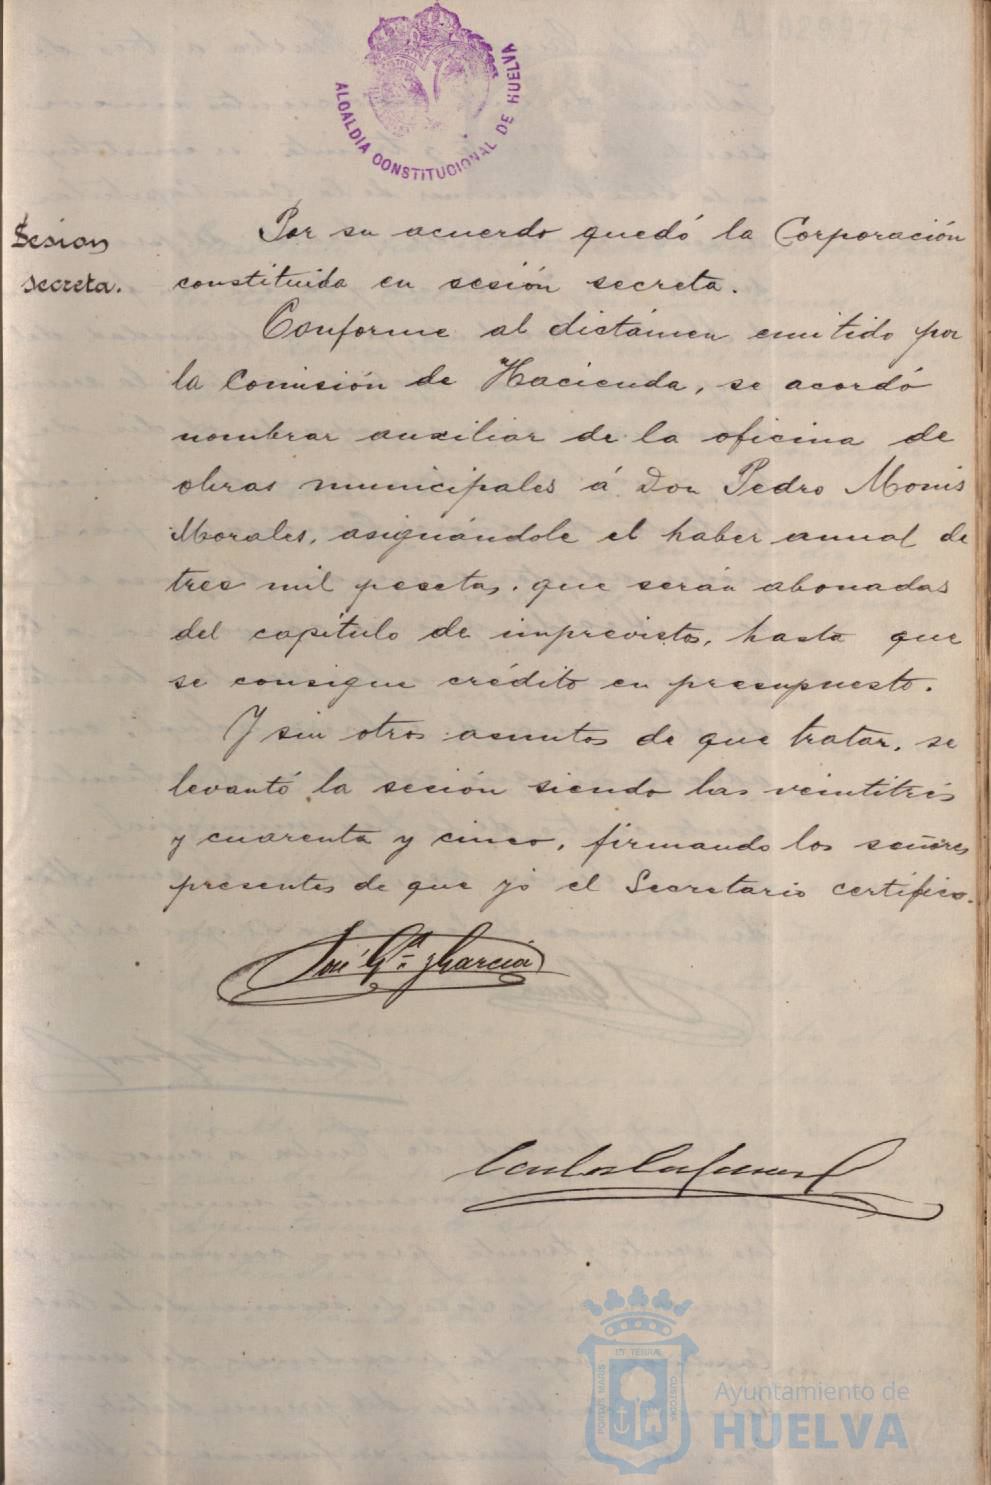 ALCALDIA CONSTITUCIONAL DE HUELVA
Sesion
secreta.
Por su acuerdo quedó la Corporación
constituida en sesión secreta.
Conforme al dictámen emitido por
la Comisión de Hacienda, se acordó
nombrar auxiliar de la oficina de
obras municipales á Don Pedro Monis
Morales, asignándole el haber anual de
tres mil pesetas, que serán abonadas
del capítulo de imprevistos, hasta que
se consigue crédito en presupuesto.
Y sin otros asuntos de que tratar, se
levantó la sesión siendo las veintitrés
y cuarenta y cinco, firmando los señores
presentes de que yo el Secretario certifico.
José Gª y García
PORTUS MARIS ET TERRÆ CUSTODIA
Ayuntamiento de
HUELVA